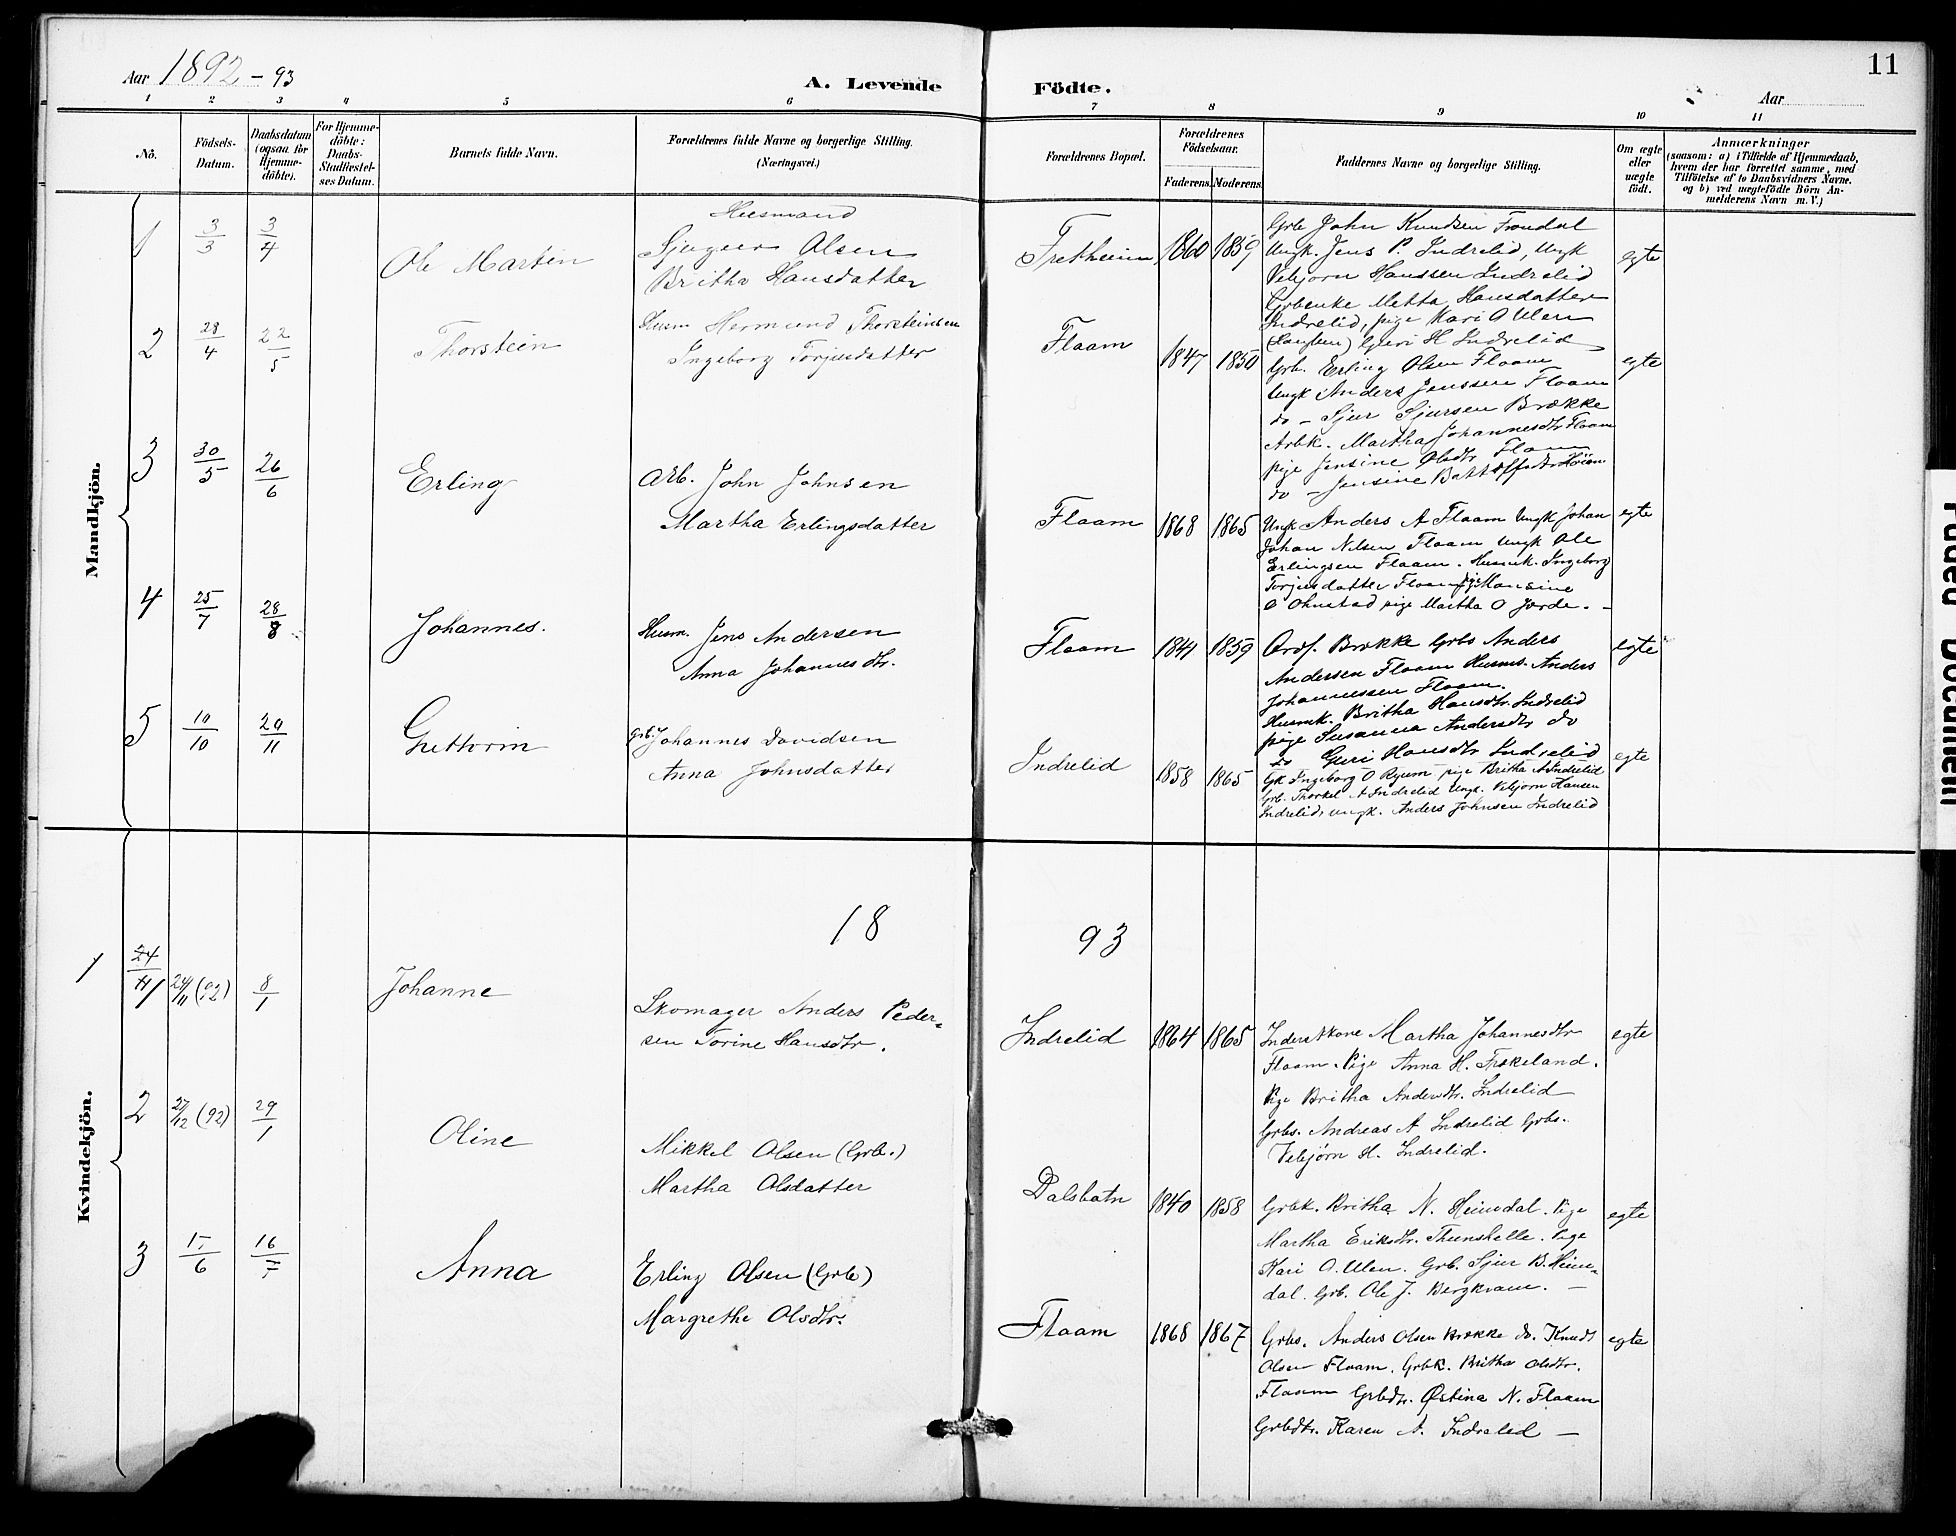 Aar 1892-93
A. Levende Födte.
11
Aar
1 2 3 4 5 6 7 8 9 10 11
No.
Födsels-Datum.
Daabsdatum (ogsaa for Hjemme-döbte).
For Hjemme-döbte: Daabs-Stadfæstel-ses Datum.
Barnets fulde Navn.
Forældrenes fulde Navne og borgerlige Stilling. (Næringsvei.)
Forældrenes Bopæl.
Forældrenes Födselsaar.
Faderens. Moderens.
Faddernes Navne og borgerlige Stilling.
Om ægte eller uægte födt.
Anmærkninger
(saasom: a) i Tilfælde af Hjemmedaab,
hvem der har forrettet samme, med
Tilföielse af to Daabsvidners Navne.
og b) ved uægtefödte Börn An-
melderens Navn m. V.)
Mandkjön.
1 3/3 3/4 Ole Martin
Huusmand
Sjugurd Olsen
Britha Hansdatter
Fretheim 1860 1859
Grb John Knudsen Frondal
Ungk. Jens P. Indrelid, Ungk
Vebjørn Hanssen Indrelid
Grbenke Metta Hansdatter
Indrelid, pige Kari O Ulen
Guri H Indrelid
egte
2 28/4 22/5 Thorstein
Husm Hermund Thorsteinsen
Ingeborg Torjusdatter
Flaam 1847 1850
Grb. Erling Olsen Flaam
Ungk Anders Jenssen Flaam
do - Sjur Sjursen Brække
Arbk. Martha Johannesdtr Flaam
pige Jensine Olsdtr Flaam
do - Jensine
egte
3 30/5 26/6 Erling
Arb. John Johnsen
Martha Erlingsdatter
Flaam 1868 1865
Ungk Anders A Flaam Ungk Johan
Johan Nilsen Flaam Ungk Ole
Erlingsen Flaam. Husmk. Ingeborg
Torjusdatter Flaam pige Hansine
O Ohnstad pige Martha O Jorde. -
egte
4 25/7 28/8 Johannes.
Husm. Jens Andersen
Anna Johannesdtr.
Flaam 1841 1859
Ordf. Brække Grbs Anders
Andersen Flaam Husms. Anders
Johannessen Flaam.
Husmk. Britha Hansdtr. Indrelid
pige Susanna Andersdtr do
do Guri Hansdtr Indrelid
egte
5 10/10 20/11 Guttorm
Grb. Johannes Davidsen
Anna Johnsdatter
Indrelid 1858 1865
Gk Ingeborg O Ryum pige Britha A Indrelid
Grb. Thorkel A Indrelid Ungk. Vebjorn Hansen
Indrelid, ungk. Anders Johnsen Indrelid
egte
Kvindekjön.
18 93
1 24/11 24/11 (92) 8/1 Johanne
Skomager Anders Peder-
sen Torine Hansdtr.
Indrelid 1864 1865
Martha Johannesdtr
Flaam. Pige Anna H. Frøkeland.
Pige Britha Andersdtr. Indrelid
Grbs. Andreas A Indrelid Grbs.
Vebjørn H. Indrelid.
egte
2 27/12 (92) 29/1 Oline
Mikkel Olsen (Grb.)
Martha Olsdatter
Dalsbotn 1840 1858
Grbk. Britha N. Heimdal. Pige
Martha Eriksdtr. Thunshelle. Pige
Kari O. Ulen. Grb. Sjur B. Heim-
dal. Grb. Ole J. Bergkvam. -
egte
3 17/6 16/7 Anna
Erling Olsen (Grb)
Margrethe Olsdtr.
Flaam 1868 1867
Grbs. Anders Olsen Brække do. Knudt
Olsen Flaam. Grbk. Britha Olsdtr.
Flaam Grbdtr. Østina N. Flaam
Grbdtr. Karen A. Indrelid -
egte